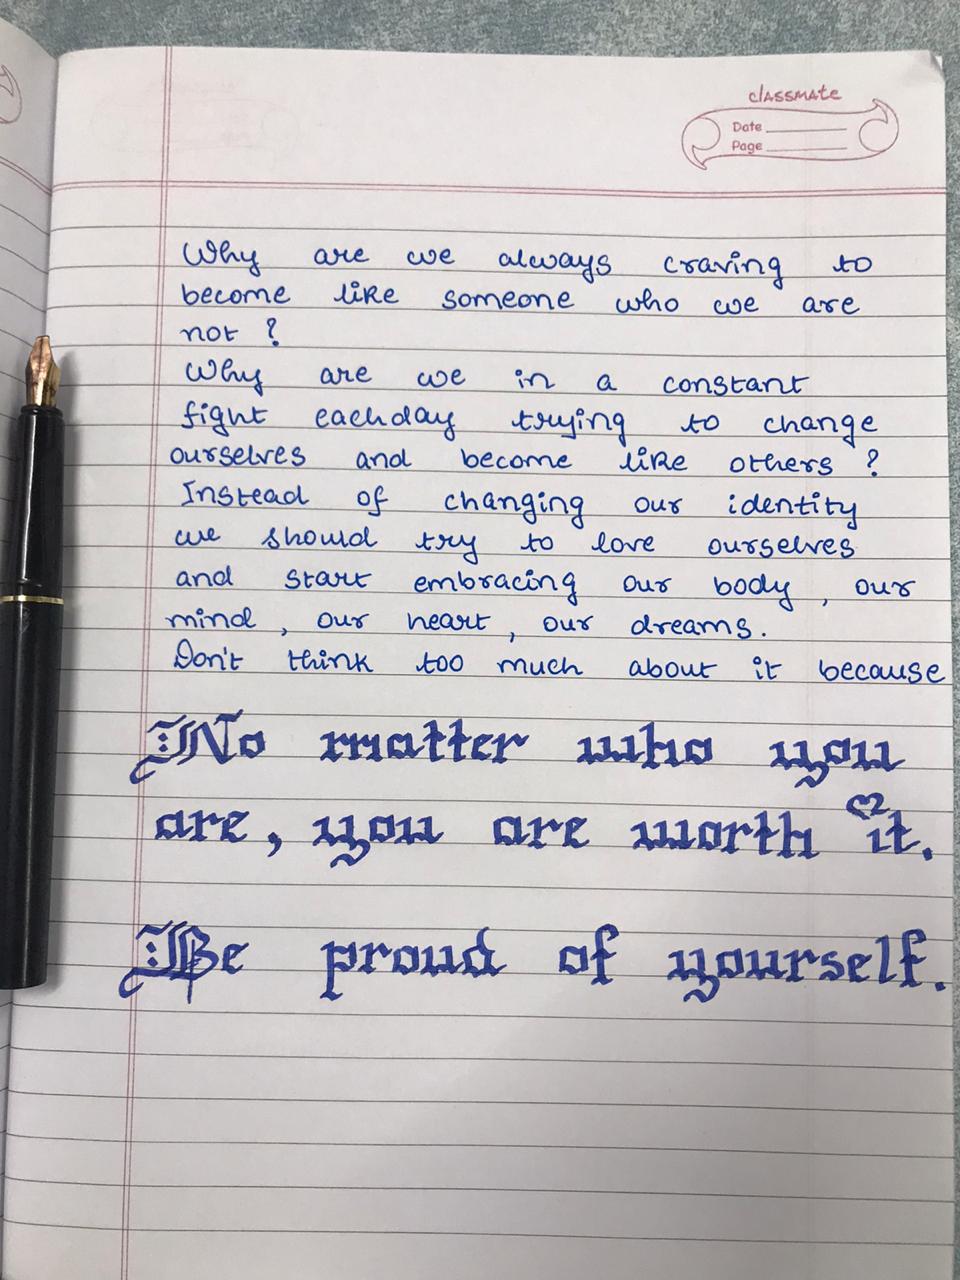 classmate
Date
Page
Why are we always craving to
become like someone who we are
not ?
Why are we in a constant
fight eachday trying to change
ourselves and become like others ?
Instead of changing our identity
we should try to love ourselves
and start embracing our body , our
mind , our heart , our dreams.
Don't think too much about it because
No matter who you
are, you are worth it.
Be proud of yourself.